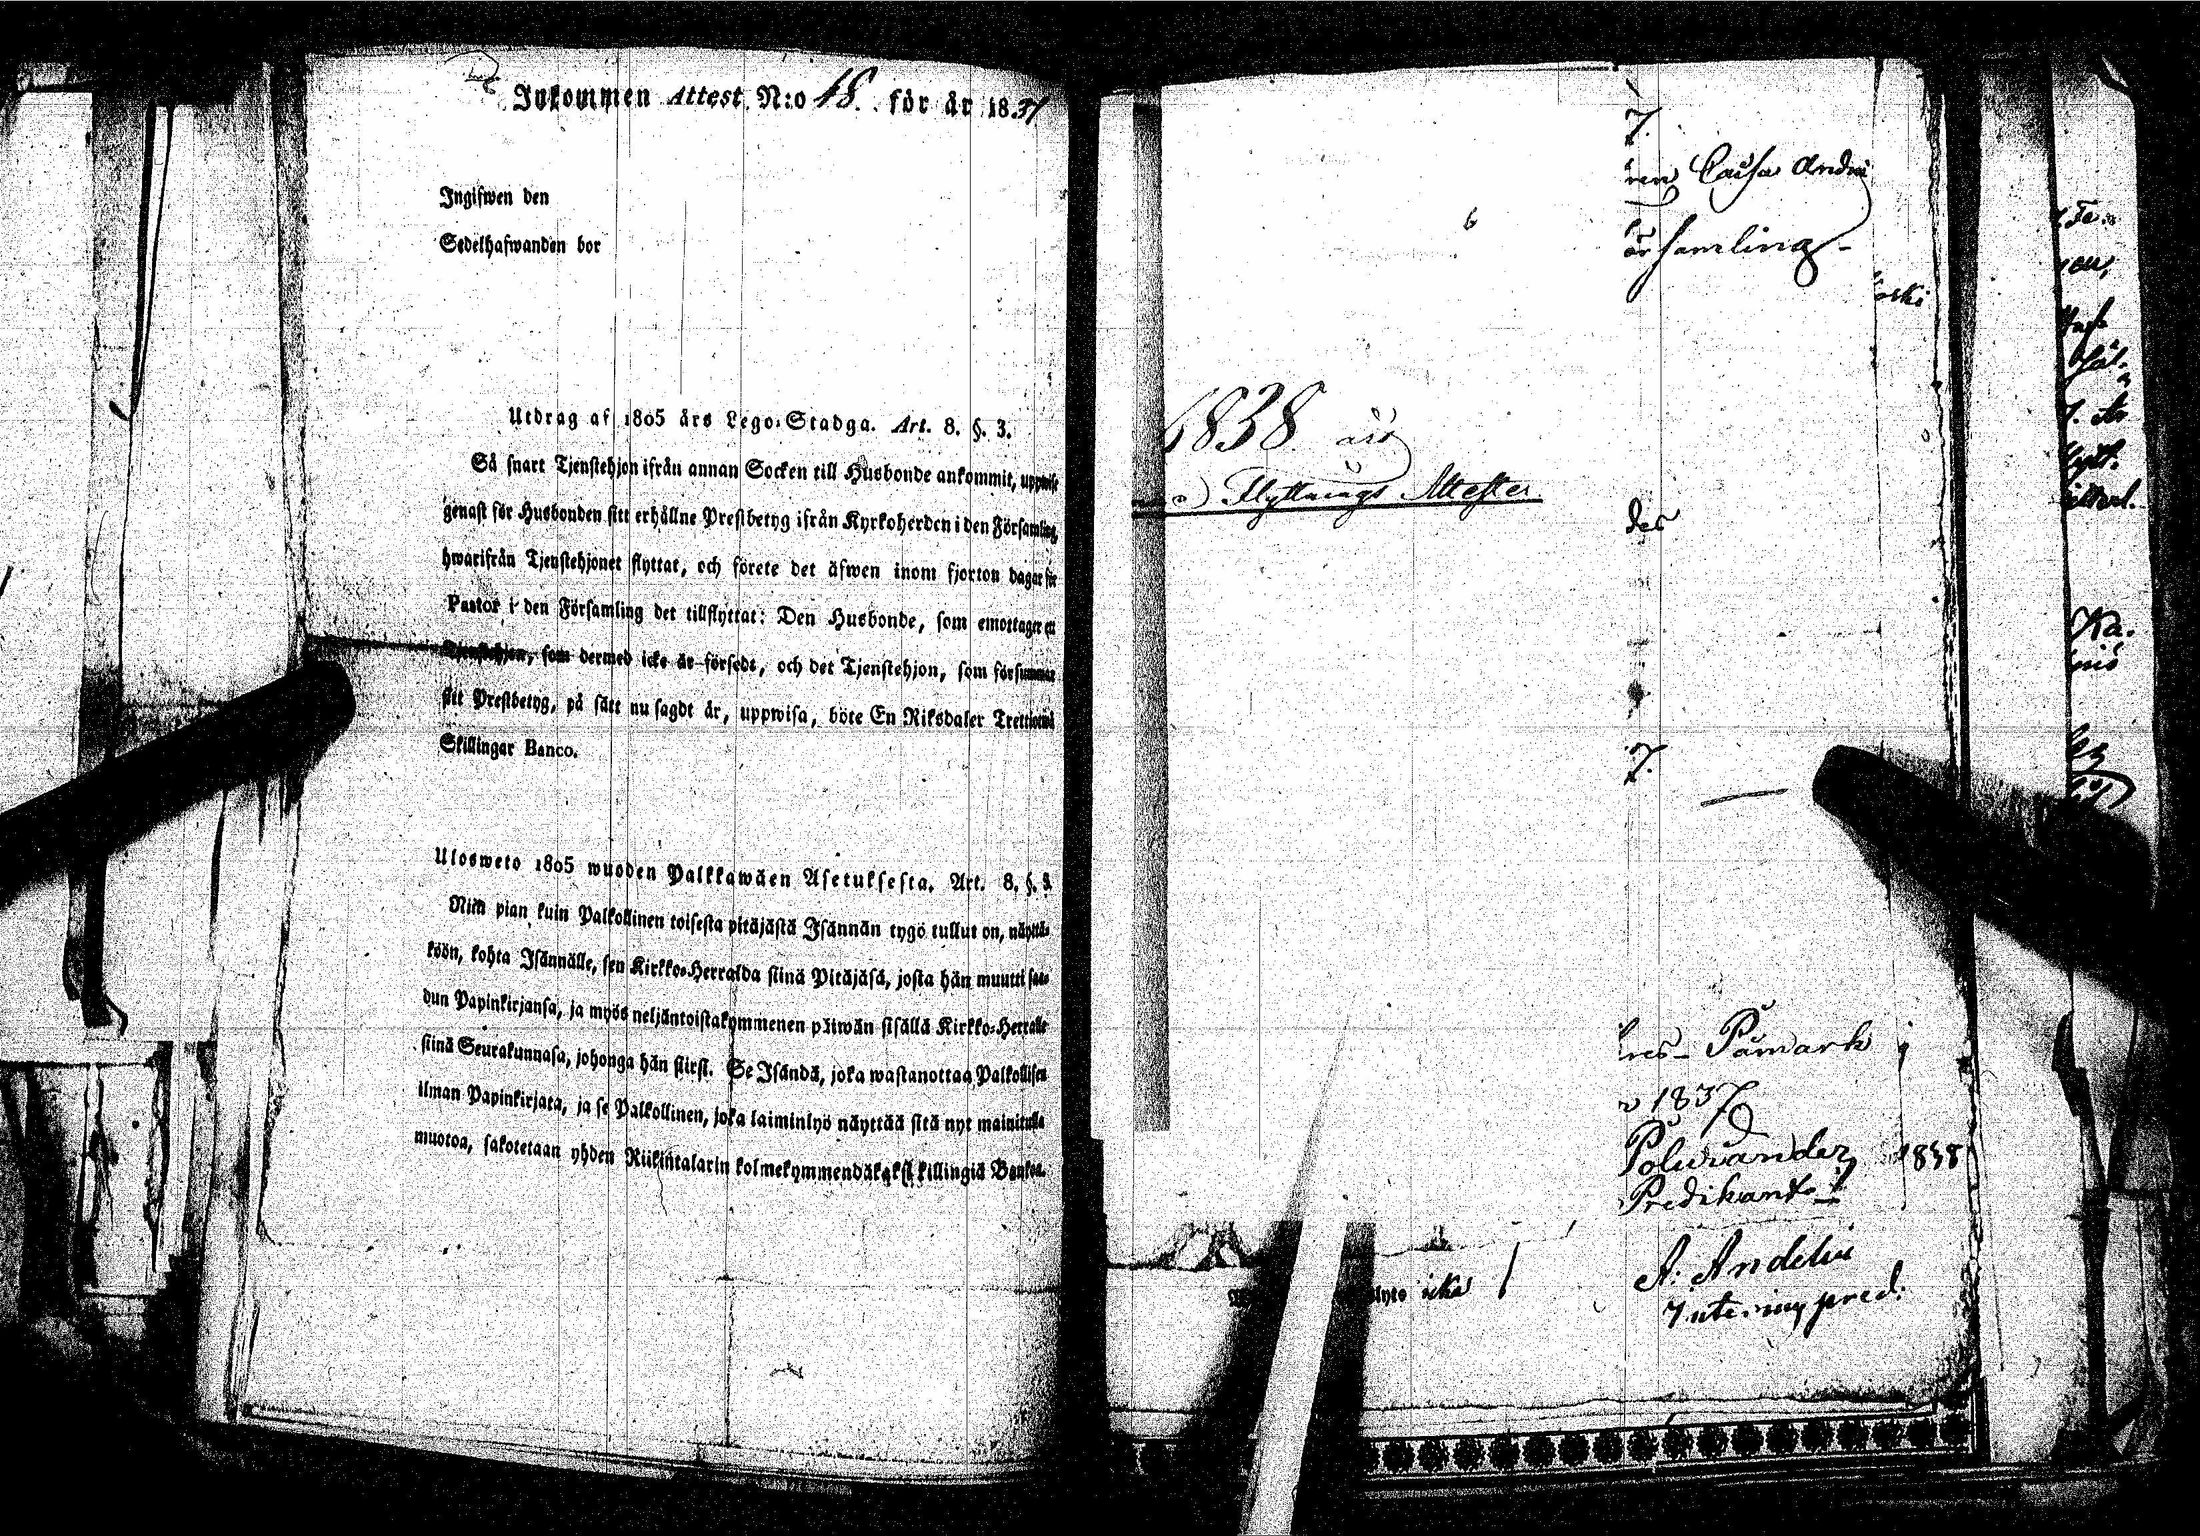 Inkommen Attest N:o 48. för år 1837
Ingifwen den
Sedelhafwanden bor
Utdrag af 1805 års Lego-Stadga. Art. 8. §. 3.
Så snart Tjenstehjon ifrån annan Socken till Husbonde ankommit, uppwise
genast för Husbonden sitt erhållne Prestbetyg ifrån Kyrkoherden i den Församling,
hwarifrån Tjenstehjonet flyttat, och förete det äfwen inom fjorton dagar för
Pastor i den Församling det tillflyttat: Den Husbonde, som emottager ett
Tjenstehjon, som dermed icke är försedt, och det Tjenstehjon, som försummar
sitt Prestbetyg, på sätt nu sagdt är, uppwisa, böte En Riksdaler Trettiotwå
Skillingar Banco.
Ulosweto 1805 wuoden Palkkawäen Asetuksesta. Art. 8. §. 3.
Niin pian kuin Palkollinen toisesta pitäjästä Isännän tygö tullut on, näyttä-
köön, kohta Isännälle, sen Kirkko-Herralda siinä Pitäjäsä, josta hän muutti saa-
dun Papinkirjansa, ja myös neljäntoistakymmenen päiwän sisällä Kirkko-Herralle
siinä Seurakunnasa, johonga hän siirsi. Se Isändä, joka wastanottaa Palkollisen
ilman Papinkirjata, ja se Palkollinen, joka laiminlyö näyttää sitä nyt mainitulla
muotoa, sakotetaan yhden Riikintalarin kolmekymmendäkaksi killingiä Bankoa.
7.
Caisa Andrei
församling
1838 års
Flyttnings Attester
des
7.
Påmark
1837
Polviander 1838
Predikant
A: Andelin
Interims pred:
icke